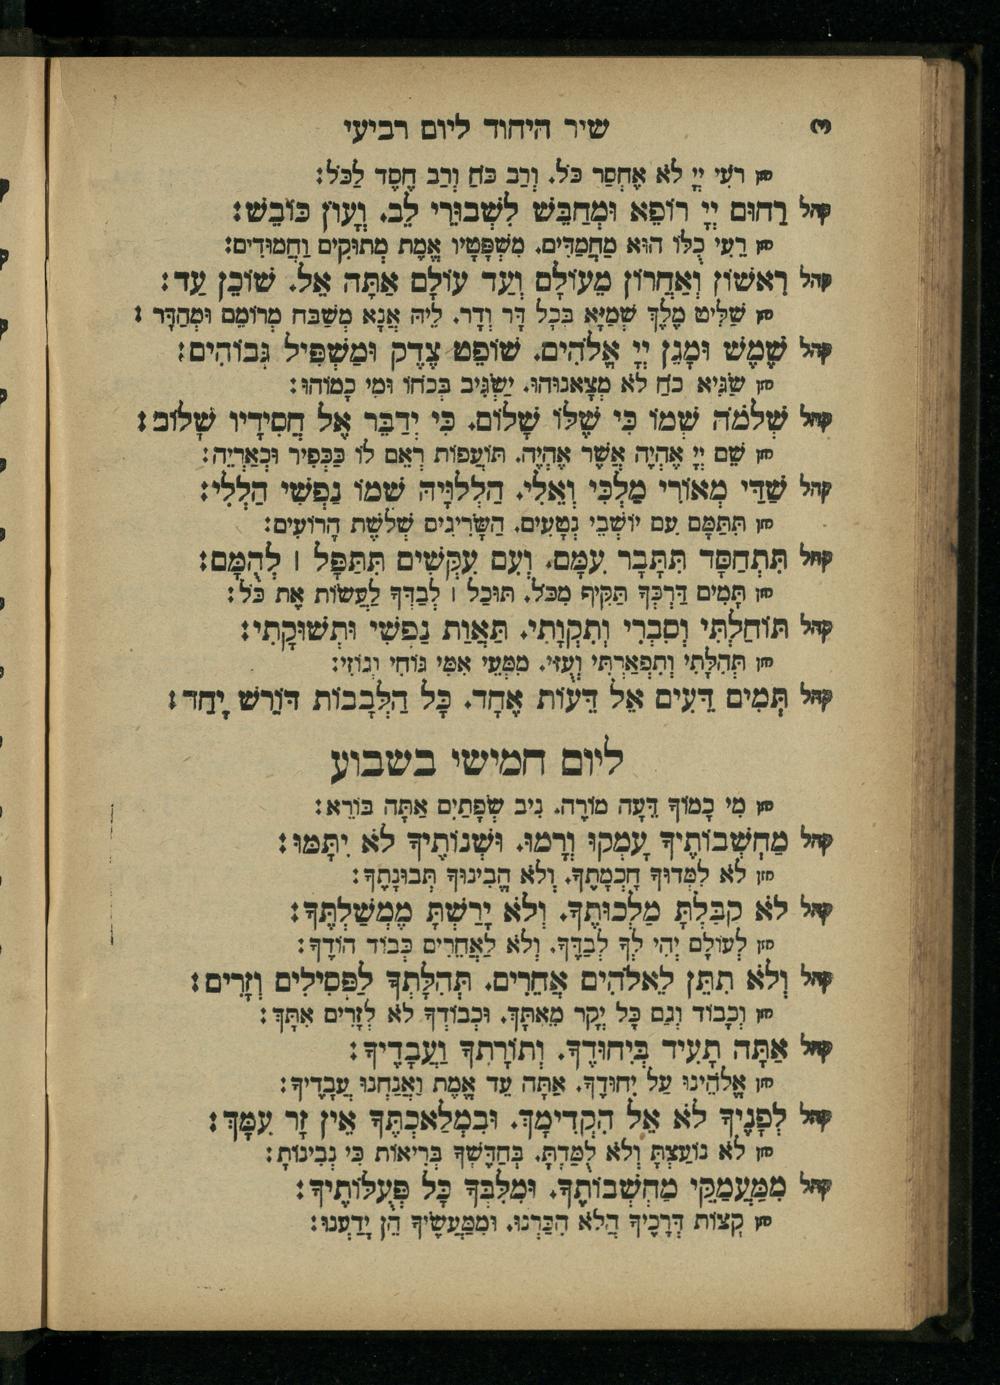 שיר היחוד ליום רביעי
חזן רֹעִי יְיָ לֹא אֶחְסַר כֹּל. וְרַב כֹּחַ וְרַב חֶסֶד לַכֹּל:
קהל רַחוּם יְיָ רוֹפֵא וּמְחַבֵּשׁ לִשְׁבוּרֵי לֵב. וְעָוֹן כּוֹבֵשׁ:
חזן רֵעִי כֻּלּוֹ הוּא מַחֲמַדִּים. מִשְׁפָּטָיו אֱמֶת מְתוּקִים וַחֲמוּדִים:
קהל רִאשׁוֹן וְאַחֲרוֹן מֵעוֹלָם וְעַד עוֹלָם אַתָּה אֵל. שׁוֹכֵן עַד:
חזן שַׁלִּיט מֶלֶךְ שְׁמַיָּא בְּכָל דָּר וְדָר. לֵיהּ אֲנָא מְשַׁבַּח מְרוֹמֵם וּמְהַדָּר:
קהל שֶׁמֶשׁ וּמָגֵן יְיָ אֱלֹהִים. שׁוֹפֵט צֶדֶק וּמַשְׁפִּיל גְּבוֹהִים:
חזן שַׂגִּיא כֹחַ לֹא מְצָאנוּהוּ. יַשְׂגִּיב בְּכֹחוֹ וּמִי כָמוֹהוּ:
קהל שְׁלֹמֹה שְׁמוֹ כִּי שֶׁלּוֹ שָׁלוֹם. כִּי יְדַבֵּר אֶל חֲסִידָיו שָׁלוֹם:
חזן שֵׁם יְיָ אֶהְיֶה אֲשֶׁר אֶהְיֶה. תּוֹעֲפוֹת רְאֵם לוֹ כַּכְּפִיר וּכְאַרְיֵה:
קהל שַׁדַּי מְאוֹרִי מַלְכִּי וְאֵלִי. הַלְלוּיָהּ שְׁמוֹ נַפְשִׁי הַלְלִי:
חזן תִּתַּמָּם עִם יוֹשְׁבֵי נְטָעִים. הַשָּׂרִיגִים שְׁלֹשֶׁת הָרוֹעִים:
קהל תִּתְחַסָּד תִּתָּבָר עִמָּם. וְעִם עִקְּשִׁים תִּתַּפָּל | לְהֻמָּם:
חזן תָּמִים דַּרְכְּךָ תַּקִּיף מִכֹּל. תּוּכַל | לְבַדְּךָ לַעֲשׂוֹת אֶת כֹּל:
קהל תּוֹחַלְתִּי וְסִבְרִי וְתִקְוָתִי. תַּאֲוַת נַפְשִׁי וּתְשׁוּקָתִי:
חזן תְּהִלָּתִי וְתִפְאַרְתִּי וְעֻזִּי. מִמְּעֵי אִמִּי גּוֹחִי וְגוֹזִי:
קהל תְּמִים דֵּעִים אֵל דֵּעוֹת אֶחָד. כָּל הַלְּבָבוֹת דּוֹרֵשׁ יָחַד:
ליום חמישי בשבוע
חזן מִי כָמוֹךָ דֵּעָה מוֹרֶה. נִיב שְׂפָתַיִם אַתָּה בּוֹרֵא:
קהל מַחְשְׁבוֹתֶיךָ עָמְקוּ וְרָמוּ. וּשְׁנוֹתֶיךָ לֹא יִתָּמּוּ:
חזן לֹא לִמְּדוּךָ חָכְמָתֶךָ. וְלֹא הֱבִינוּךָ תְּבוּנָתֶךָ:
קהל לֹא קִבַּלְתָּ מַלְכוּתֶךָ. וְלֹא יָרַשְׁתָּ מֶמְשַׁלְתֶּךָ:
חזן לְעוֹלָם יְהִי לְךָ לְבַדֶּךָ. וְלֹא לַאֲחֵרִים כְּבוֹד הוֹדֶךָ:
קהל וְלֹא תִתֵּן לֵאלֹהִים אֲחֵרִים. תְּהִלָּתְךָ לַפְּסִילִים וְזָרִים:
חזן וְכָבוֹד וְגַם כָּל יְקָר מֵאִתָּךְ. וּכְבוֹדְךָ לֹא לְזָרִים אִתָּךְ:
קהל אַתָּה תָּעִיד בְּיִחוּדֶךָ. וְתוֹרָתְךָ וַעֲבָדֶיךָ:
חזן אֱלֹהֵינוּ עַל יִחוּדֶךָ. אַתָּה עֵד אֱמֶת וַאֲנַחְנוּ עֲבָדֶיךָ:
קהל לְפָנֶיךָ לֹא אֵל הִקְדִּימָךְ. וּבִמְלַאכְתְּךָ אֵין זָר עִמָּךְ:
חזן לֹא נוֹעַצְתָּ וְלֹא לֻמַּדְתָּ. בְּחַדֶּשְׁךָ בְּרִיאוֹת כִּי נְבִינוֹתָ:
קהל מִמַּעֲמַקֵּי מַחְשְׁבוֹתֶיךָ. וּמִלִּבְּךָ כָּל פְּעֻלּוֹתֶיךָ:
חזן קְצוֹת דְּרָכֶיךָ הֲלֹא הִכַּרְנוּ. וּמִמַּעֲשֶׂיךָ הֵן יָדַעְנוּ: